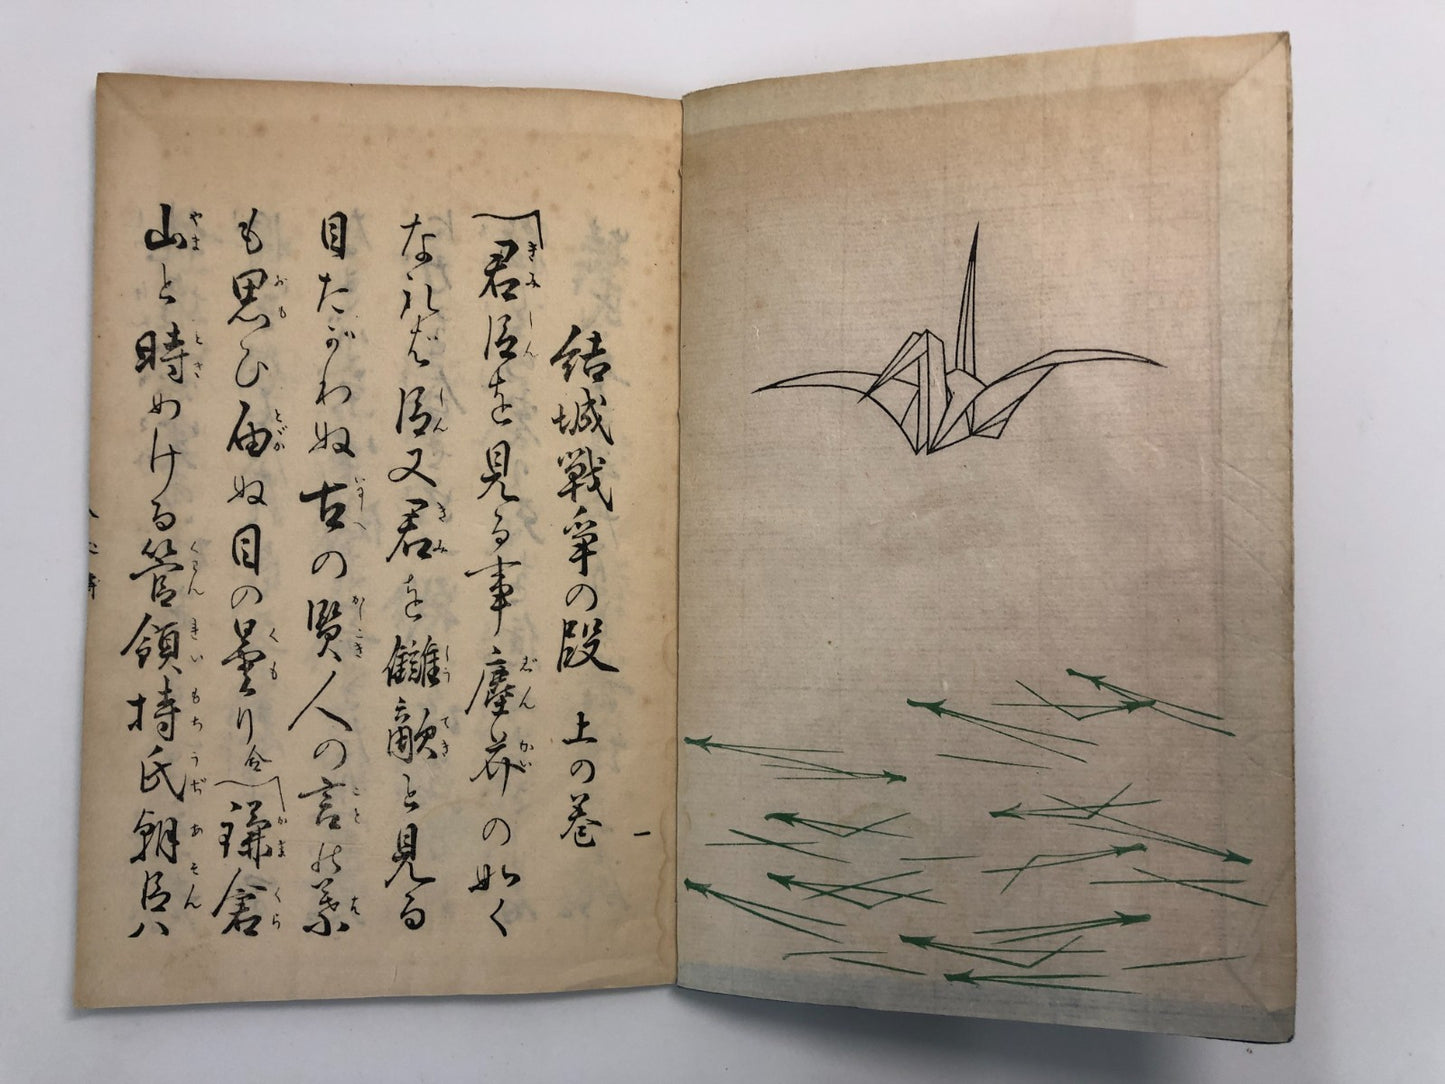 結城戦争の段 上の巻
一
君臣を見る事塵芥の如く
なれば臣又君を讎敵と見る
目たがわぬ古の賢人の言の葉
も思ひ届ぬ目の曇り 鎌倉
山と時めける管領持氏朝臣ハ